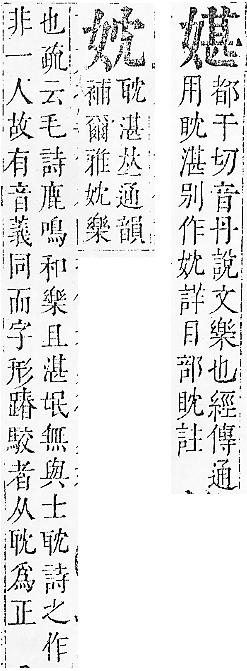 媅
都干切音丹說文樂也經傳通
用眈湛别作妉詳目部眈註
妉
耽湛𠀤通韻
補爾雅妉樂
也疏云毛詩鹿鳴和樂且湛氓無與士耽詩之作
非一人故有音義同而字形踳駮者从耽爲正